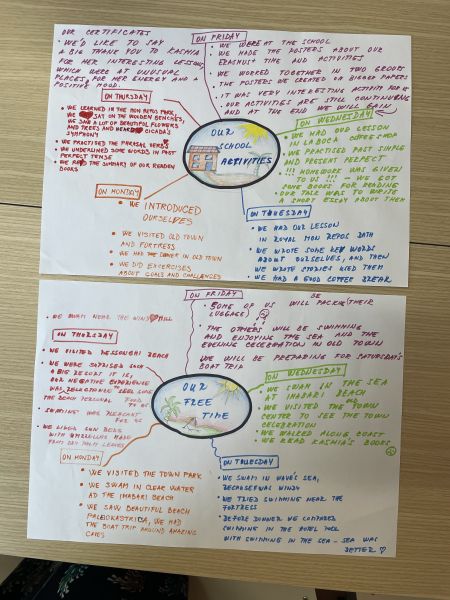 OUR CERTIFICATES
• WE'D LIKE TO SAY
A BIG THANK YOU TO KASHIA
FOR HER INTERESTING LESSONS,
WHICH WERE AT UNUSUAL
PLACES, FOR HER ENERGY AND A
POSITIVE MOOD.
ON FRIDAY
• WE WERE AT THE SCHOOL
• WE MADE THE POSTERS ABOUT OUR
ERASMUS+ TIME AND ACTIVITIES
• WE WORKED TOGETHER IN TWO GROUPS
• THE POSTERS WE CREATED ON BIGGER PAPERS
• IT WAS VERY INTERESTING ACTIVITY FOR US
• OUR ACTIVITIES ARE STILL CONTINUING
AND AT THE END WE WILL GAIN
ON THURSDAY
• WE LEARNED IN THE MON REPO PARK
• WE SAT ON THE WOODEN BENCHES,
WE SAW A LOT OF BEAUTIFUL FLOWERS
AND TREES AND HEARD CICADA'S
SYMPHONY
• WE PRACTISED THE PHRASAL VERBS
• WE UNDERLINED SOME WORDS IN PAST
PERFECT TENSE
• WE READ THE SUMMARY OF OUR READEN
BOOKS
OUR
SCHOOL
ACTIVITIES
ON WEDNESDAY
• WE HAD OUR LESSON
IN LABOCA COFFEE SHOP
• WE PRACTISED PAST SIMPLE
AND PRESENT PERFECT
• !!! HOMEWORK WAS GIVEN
TO US !!! - WE GOT
SOME BOOKS FOR READING
OUR TALK WAS TO WRITE
A SHORT ESSAY ABOUT THEM
ON MONDAY
• WE INTRODUCED
OURSELVES
• WE VISITED OLD TOWN
AND FORTRESS
• WE HAD THE DINNER IN OLD TOWN
• WE DID EXCERCISES
ABOUT GOALS AND CHALLENGES
ON TUESDAY
• WE HAD OUR LESSON
IN ROYAL MON REPOS PATH
• WE WROTE SOME KEY WORDS
ABOUT OURSELVES, AND THEN
• WE WROTE STORIES USED THEM
• WE HAD A GOOD COFFEE BREAK
ON FRIDAY
• SOME OF US WILL BE PACKING THEIR
LUGGAGE
• THE OTHERS WILL BE SWIMMING
AND ENJOYING THE SEA AND THE
EVENING CELEBRATION IN OLD TOWN
• WE WILL BE PREPARING FOR SATURDAY'S
BOAT TRIP
• WE SWAM NEAR THE WIND MILL
ON THURSDAY
• WE VISITED MESSONGHI BEACH
• WE WERE SURPRISED SUCH
A BIG RESORT IT IS,
OUR NEGATIVE EXPERIENCE
WAS
THE BEACH PERSONAL FOOD
TO US
• SWIMMING WAS PLEASANT
FOR US
• WE LIKED SUN BEDS
WITH UMBRELLAS MADE
FROM DRY PALM LEAVES
OUR
FREE
TIME
ON WEDNESDAY
• WE SWAM IN THE SEA
AT IMABARI BEACH
• WE VISITED THE TOWN
CENTER TO SEE THE TOWN
CELEBRATION
• WE WALKED ALONG COAST
• WE READ KASHIA'S BOOKS
ON MONDAY
• WE VISITED THE TOWN PARK
• WE SWAM IN CLEAR WATER
AD THE IMABARI BEACH
• WE SAW BEAUTIFUL BEACH
PALEOKASTRICA, WE HAD
THE BOAT TRIP AROUND AMAZING
CAVES
ON TUESDAY
• WE SWAM IN WAVE'S SEA,
BECAUSE WAS WINDY
• WE TRIED SWIMMING NEAR THE
FORTRESS
• BEFORE DINNER WE COMPARED
SWIMMING IN THE HOTEL POOL
WITH SWIMMING IN THE SEA - SEA WAS
BETTER